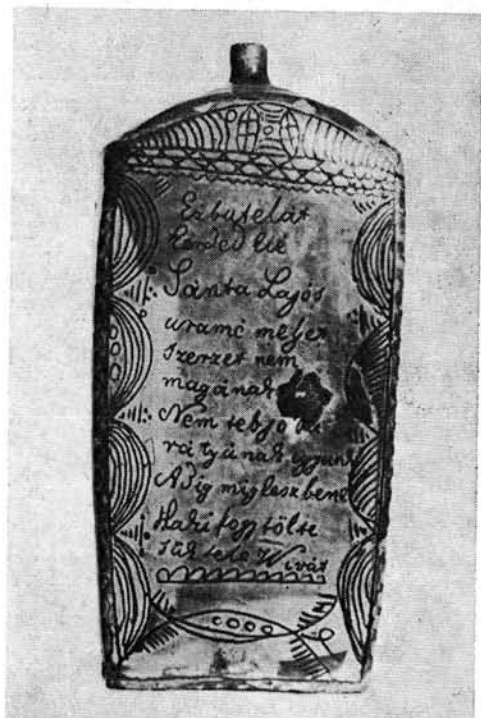 Ezbutelát
kérded kié
Sánta Lajós
uramé mejjet
szerzet nem
magának
Nem seb jo ba
rátyának igyunk
Adig mig lesz bene
Haki fogy tölte
sük tele Wivát